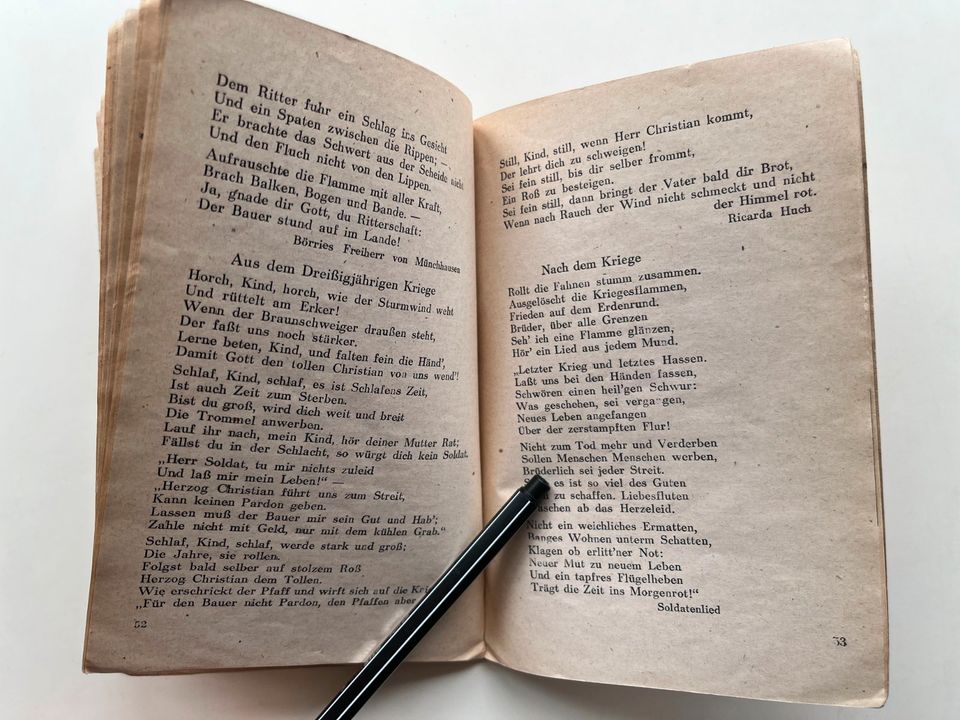 Dem Ritter fuhr ein Schlag ins Gesicht
Und ein Spaten zwischen die Rippen; —
Er brachte das Schwert aus der Scheide nicht
Und den Fluch nicht von den Lippen.
Aufrauschte die Flamme mit aller Kraft,
Brach Balken, Bogen und Bande. —
Ja, gnade dir Gott, du Ritterschaft:
Der Bauer stund auf im Lande!
Börries Freiherr von Münchhausen
Aus dem Dreißigjährigen Kriege
Horch, Kind, horch, wie der Sturmwind weht
Und rüttelt am Erker!
Wenn der Braunschweiger draußen steht,
Der faßt uns noch stärker.
Lerne beten, Kind, und falten fein die Händ',
Damit Gott den tollen Christian von uns wend'!
Schlaf, Kind, schlaf, es ist Schlafens Zeit,
Ist auch Zeit zum Sterben.
Bist du groß, wird dich weit und breit
Die Trommel anwerben.
Lauf ihr nach, mein Kind, hör deiner Mutter Rat;
Fällst du in der Schlacht, so würgt dich kein Soldat.
„Herr Soldat, tu mir nichts zuleid
Und laß mir mein Leben!“ —
„Herzog Christian führt uns zum Streit,
Kann keinen Pardon geben.
Lassen muß der Bauer mir sein Gut und Hab';
Zahle nicht mit Geld, nur mit dem kühlen Grab.“
Schlaf, Kind, schlaf, werde stark und groß;
Die Jahre, sie rollen.
Folgst bald selber auf stolzem Roß
Herzog Christian dem Tollen.
Wie erschrickt der Pfaff und wirft sich auf die
„Für den Bauer nicht Pardon, den Pfaffen aber
52
Still, Kind, still, wenn Herr Christian kommt,
Der lehrt dich zu schweigen!
Sei fein still, bis dir selber frommt,
Ein Roß zu besteigen.
Sei fein still, dann bringt der Vater bald dir Brot,
Wenn nach Rauch der Wind nicht schmeckt und nicht
der Himmel rot.
Ricarda Huch
Nach dem Kriege
Rollt die Fahnen stumm zusammen.
Ausgelöscht die Kriegesflammen,
Frieden auf dem Erdenrund.
Brüder, über alle Grenzen
Seh' ich eine Flamme glänzen,
Hör' ein Lied aus jedem Mund.
„Letzter Krieg und letztes Hassen.
Laßt uns bei den Händen fassen,
Schwören einen heil'gen Schwur:
Was geschehen, sei vergangen,
Neues Leben angefangen
Über der zerstampften Flur!
Nicht zum Tod mehr und Verderben
Sollen Menschen Menschen werben,
Brüderlich sei jeder Streit.
es ist so viel des Guten
zu schaffen. Liebesfluten
ab das Herzeleid.
Nicht ein weichliches Ermatten,
Banges Wohnen unterm Schatten,
Klagen ob erlitt'ner Not:
Neuer Mut zu neuem Leben
Und ein tapfres Flügelheben
Trägt die Zeit ins Morgenrot!“
Soldatenlied
53